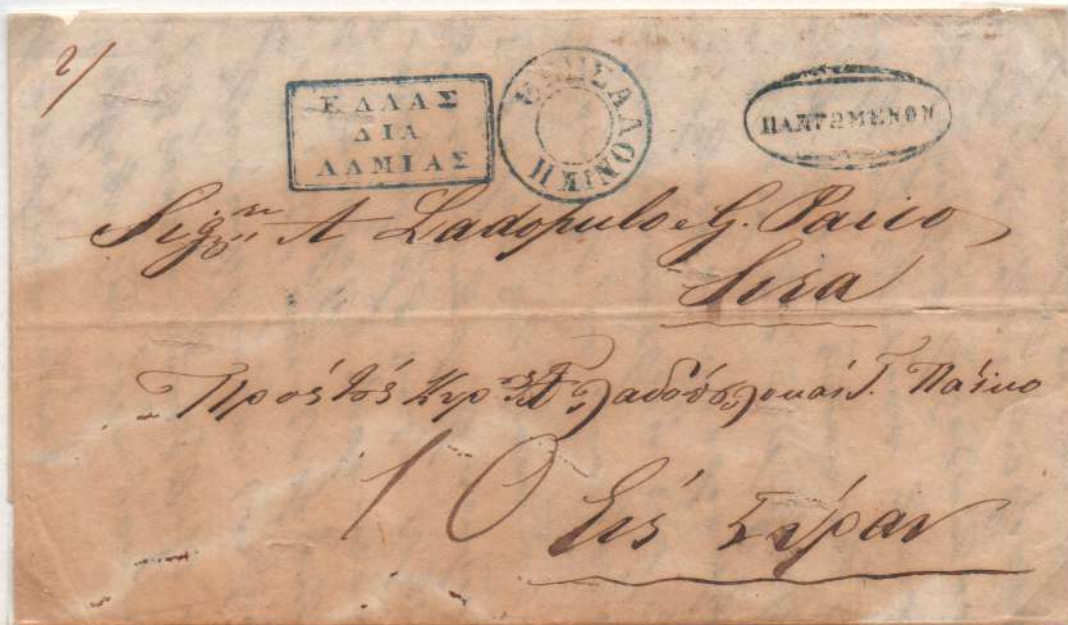 2/
ΕΛΛΑΣ
ΔΙΑ
ΛΑΜΙΑΣ
ΘΕΣΣΑΛΟΝΙΚΗ
ΠΛΗΡΩΜΕΝΟΝ
Sigri A Ladopulo e G. Paico
Sira
Πρὸς τὸς Κυρ Α Λαδόπουλο καὶ Γ. Πάϊκο
10
Εἰς Σύραν